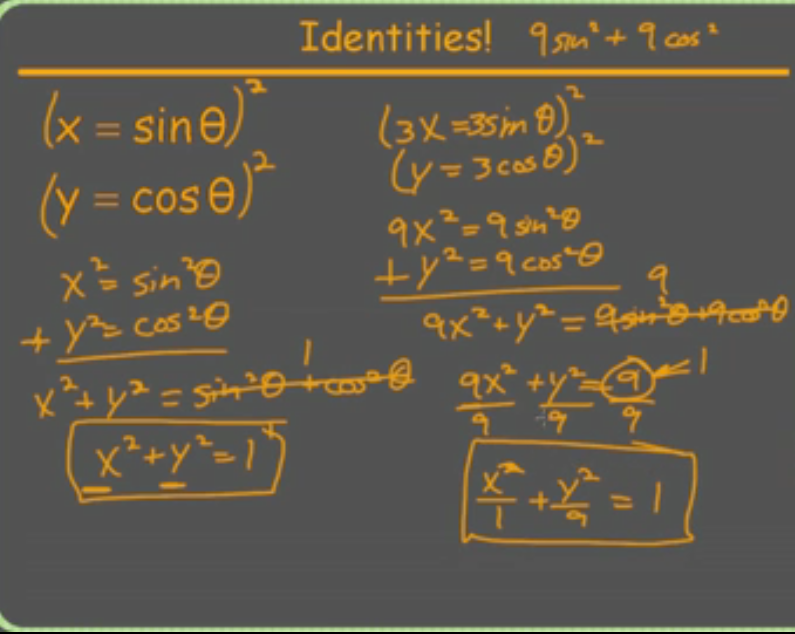 Identities! 9 sin² + 9 cos²
(x = sin θ)²
(y = cos θ)²
x² = sin²θ
+ y² = cos²θ
x² + y² = sin²θ + cos²θ
1
x² + y² = 1
(3x = 3sin θ)²
(y = 3cos θ)²
9x² = 9 sin²θ
+ y² = 9 cos²θ
9
9x² + y² = 9sin²θ + 9cos²θ
9x²/9 + y²/9 = 9/9 ← 1
x²/1 + y²/9 = 1